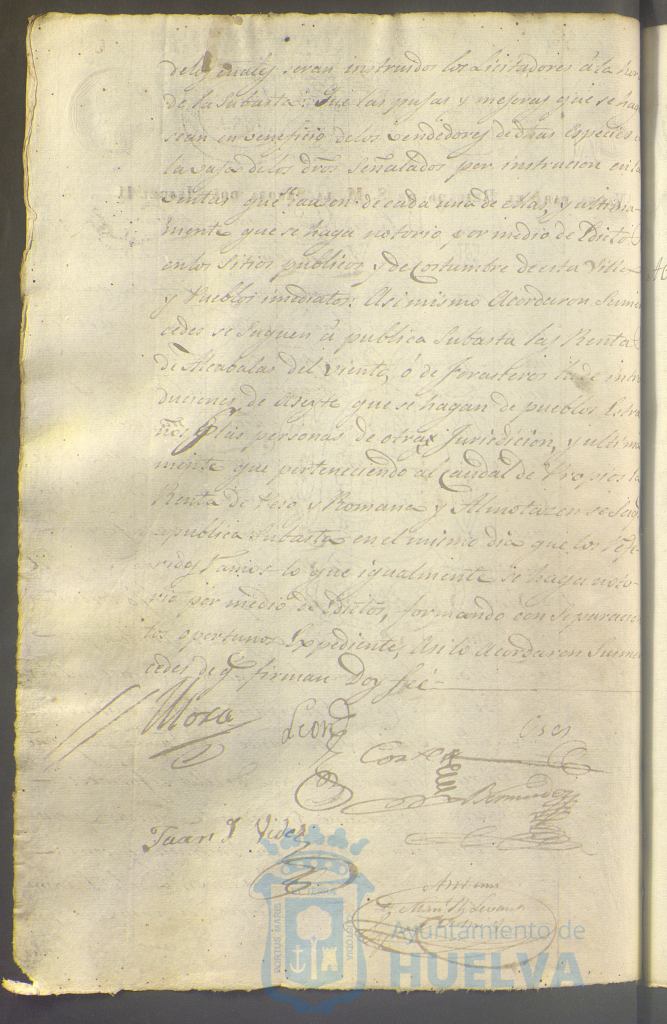 de los cuales seran instruidos los Licitadores á la hor
de la Subasta: Que las pujas y mejoras que se ha
sean en beneficio de los Vendedores de dhas Especies
la vaja de los dros señalados por instrucion en la
ventas que causen de cada una de ellas y ultima-
mente que se haga notorio por medio de Edictos
en los Sitios publicos y de Costumbre de esta Villa
y Pueblos imediatos: Asimismo Acordaron Sume
cedes se saquen á publica Subasta las Rentas
de Alcabalas del viento, ó de forasteros la de intro
duciones de Aseyte que se hagan de pueblos Estra
ños las personas de otra Jurisdicion, y ultima
mente que perteneciendo al Caudal de Propios la
Renta de Peso y Romana y Almotacen se saque
publica Subasta en el mismo dia que los refe-
ridos Ramos lo que igualmente se haga noto-
rio por medio de Edictos, formando con separacion
los oportunos Expediente, Asi lo Acordaron Sume
cedes de q. firman Doy fee-
Mora
Leon
Cortes
Bermudez
Juan J Vides
PORTUS MARIS
CUSTODIA
Ayuntamiento de
HUELVA